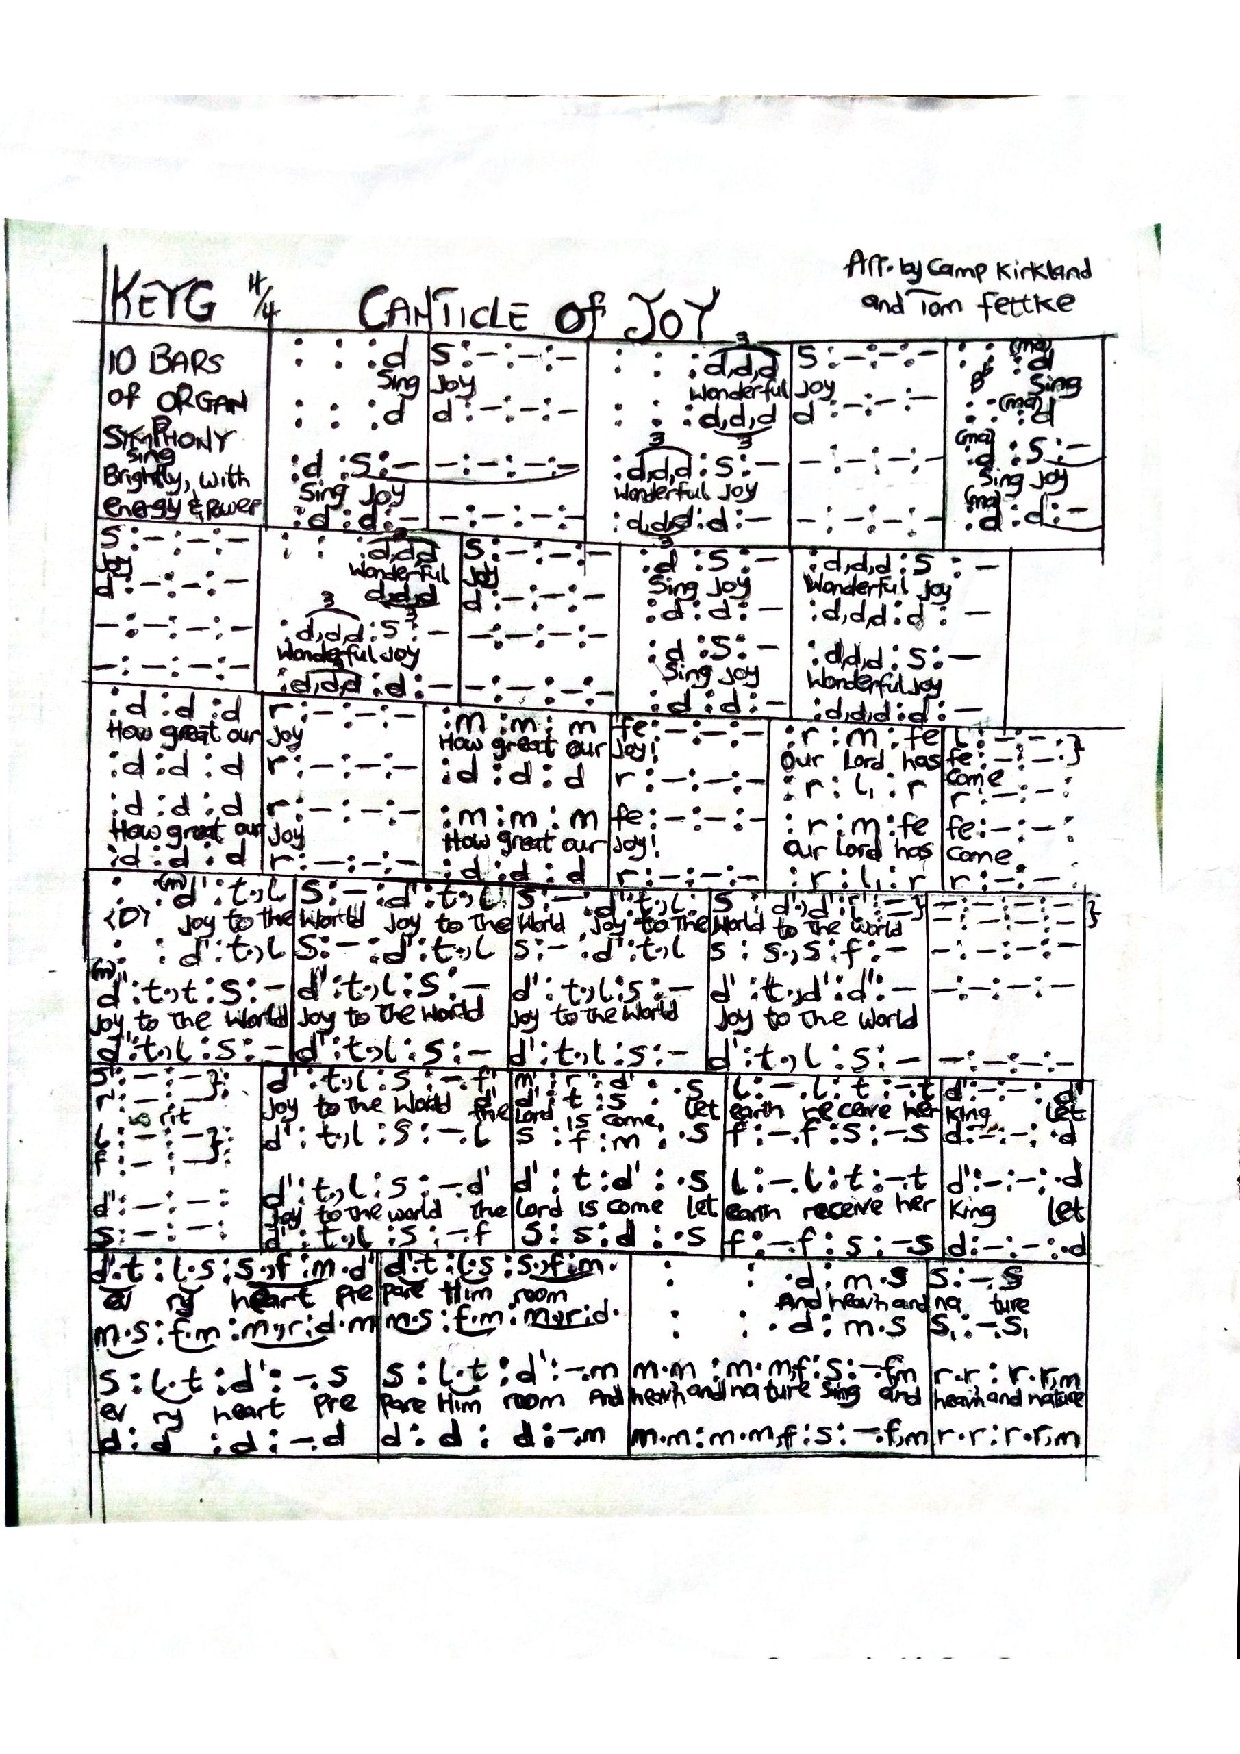 KEY G 4/4 CANTICLE of JOY
Arr. by Camp Kirkland
and Tom Fettke
10 BARS
of ORGAN
SYMPHONY
sing
Brightly, with
energy & Power
: : : d | s : – : – : – | : : : d,d,d | s : – : – : – | : : : (ma) d
Sing Joy Wonderful Joy Sing
: : : d | d : – : – : – | : : : d,d,d | d : – : – : – | : : : (ma) d
: d : s : – | – : – : – : – | : d,d,d : s : – | – : – : – : – | (ma) : d : s : –
Sing Joy Wonderful Joy Sing Joy
: d : d : – | – : – : – : – | : d,d,d : d : – | – : – : – : – | (ma) : d : d : –
s : – : – : – | : : : d,d,d | s : – : – : – | : d : s : – | : d,d,d : s : –
Joy Wonderful Joy Sing Joy Wonderful Joy
d : – : – : – | : : : d,d,d | d : – : – : – | : d : d : – | : d,d,d : d : –
– : – : – : – | : d,d,d : s : – | – : – : – : – | : d : s : – | : d,d,d : s : –
Wonderful Joy Sing Joy Wonderful Joy
– : – : – : – | : d,d,d : d : – | – : – : – : – | : d : d : – | : d,d,d : d : –
: d : d : d | r : – : – : – | : m : m : m | fe : – : – : – | : r : m : fe | l : – : – : }
How great our Joy How great our Joy! Our Lord has fe : – : – : –
come
: d : d : d | r : – : – : – | : d : d : d | r : – : – : – | : r : l₁ : r | r : – : – :
: d : d : d | r : – : – : – | : m : m : m | fe : – : – : – | : r : m : fe | fe : – : – :
How great our Joy How great our Joy! Our Lord has come.
: d : d : d | r : – : – : – | : d : d : d | r : – : – : – | : r : l₁ : r | r : – : – :
: (m) d' : t.,l | s : – : d' : t.,l | s : – : d' : t.,l | s : d'.,d' : r' : – } | – : – : – : – }
(D) Joy to the World Joy to the World Joy to the World to the World
: : d' : t.,l | s : – : d' : t.,l | s : – : d' : t.,l | s : s.,s : f : – | – : – : – : –
(m) d' : t.,t : s : – | d' : t.,l : s : – | d' : t.,l : s : – | d' : t.,d' : d' : – | – : – : – : –
Joy to the World Joy to the World Joy to the World Joy to the World
d' : t.,l : s : – | d' : t.,l : s : – | d' : t.,l : s : – | d' : t.,l : s : – | – : – : – : –
s : – : – : } | d' : t.,l : s : –.f' | m' : r' : d' : .s | l : –.l : t : –.t | d' : – : – : d'
Joy to the World the Lord is come, let earth receive her King Let
rit
d' : t.,l : s : –.l | s : f : m : .s | f : –.f : s : –.s | d : – : – : d
d' : – : – : | d' : t.,l : s : –.d' | d' : t : d' : .s | l : –.l : t : –.t | d' : – : – : d
Joy to the world the Lord is come let earth receive her King let
s : – : – : | d' : t.,l : s : –.f | s : s : d : .s | f : –.f : s : –.s | d : – : – : d
d'.t : l.s : s.,f : m.d' | d'.t : l.s : s.,f : m. | : : .d : m.s | s : –.s
ev ry heart Pre Pare Him room And heav'n and na ture
m.s : f.m : m.,r : d.m | m.s : f.m : m.,r : d. | : : .d : m.s | s₁ : –.s₁
s : l.t : d' : –.s | s : l.t : d' : –.m | m.m : m.m,f : s : –.f,m | r.r : r.r,m
ev ry heart Pre Pare Him room And heav'n and na ture Sing and heav'n and nature
d : d : d : –.d | d : d : d : –.m | m.m : m.m,f : s : –.f,m | r.r : r.r,m